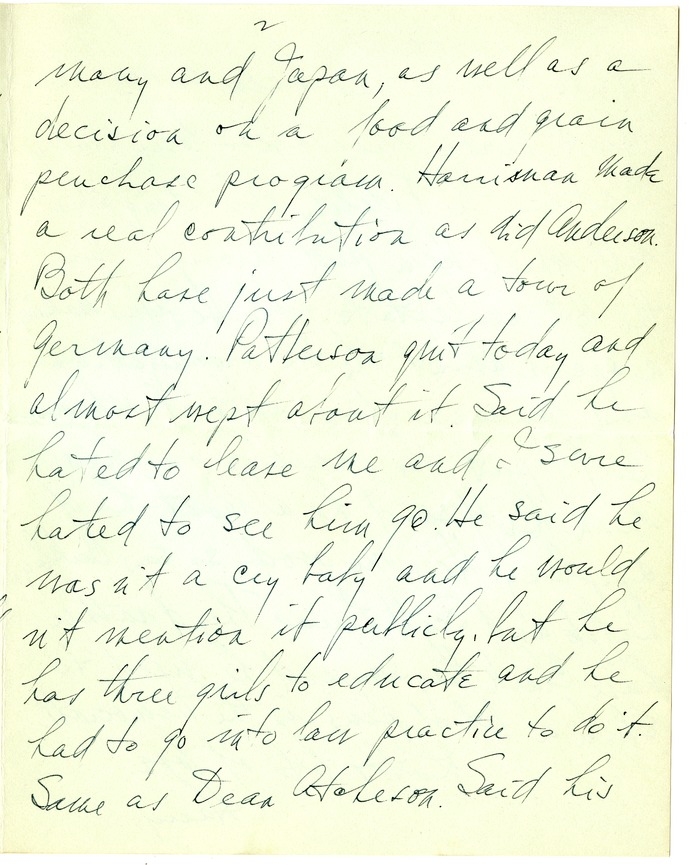 2
many and Japan, as well as a
decision on a food and grain
purchase program. Harriman made
a real contribution as did Anderson.
Both have just made a tour of
Germany. Patterson quit today and
almost wept about it. Said he
hated to leave me and I sure
hated to see him go. He said he
was n't a cry baby and he would
n't mention it publicly, but he
has three girls to educate and he
had to go into law practice to do it.
Same as Dean Atcheson. Said his